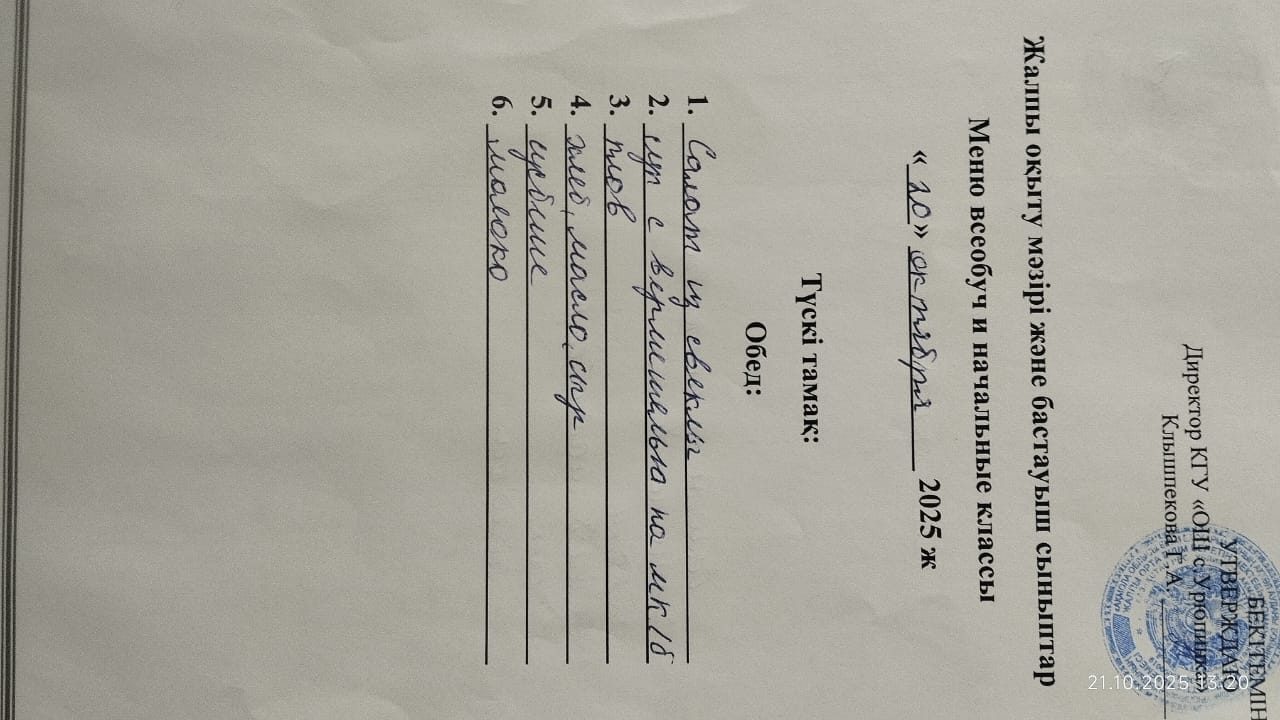 БЕКІТЕМІН
УТВЕРЖДАЮ
Директор КГУ «ОШ с Урюпинка»
Клышпекова Г.А.
Жалпы оқыту мәзірі және бастауыш сыныптар
Меню всеобуч и начальные классы
«20» октября 2025 ж
Түскі тамақ:
Обед:
1. Салат из свеклы
2. суп с вермишелью на мк/б
3. плов
4. хлеб, масло, сыр
5.
6. молоко
21.10.2025 13:20